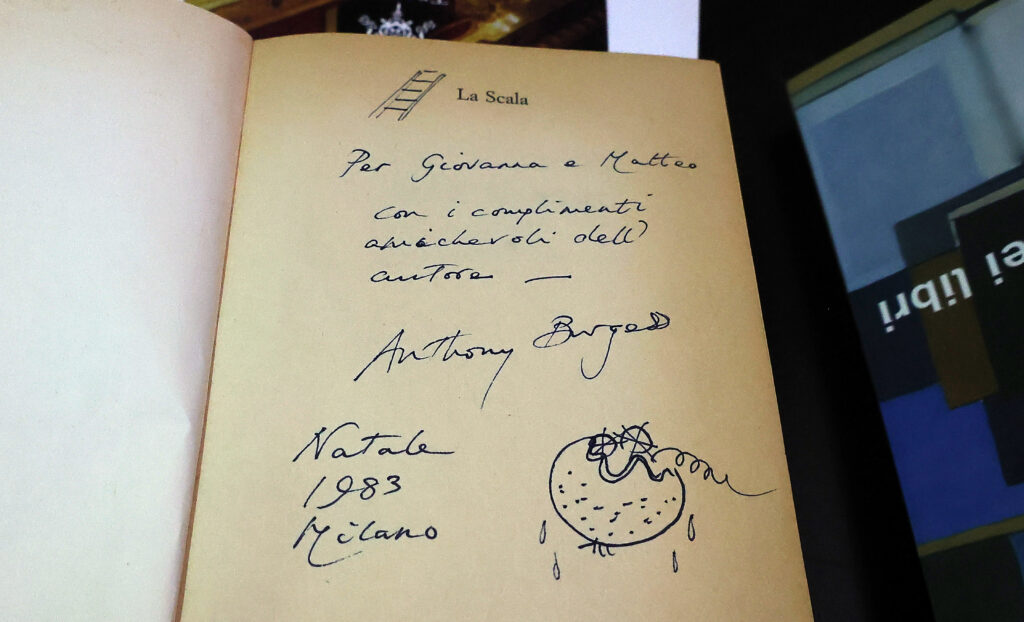 La Scala
Per Giovanna e Matteo
con i complimenti
amichevoli dell'
autore —
Anthony Burgess
Natale
1983
Milano
ei libri